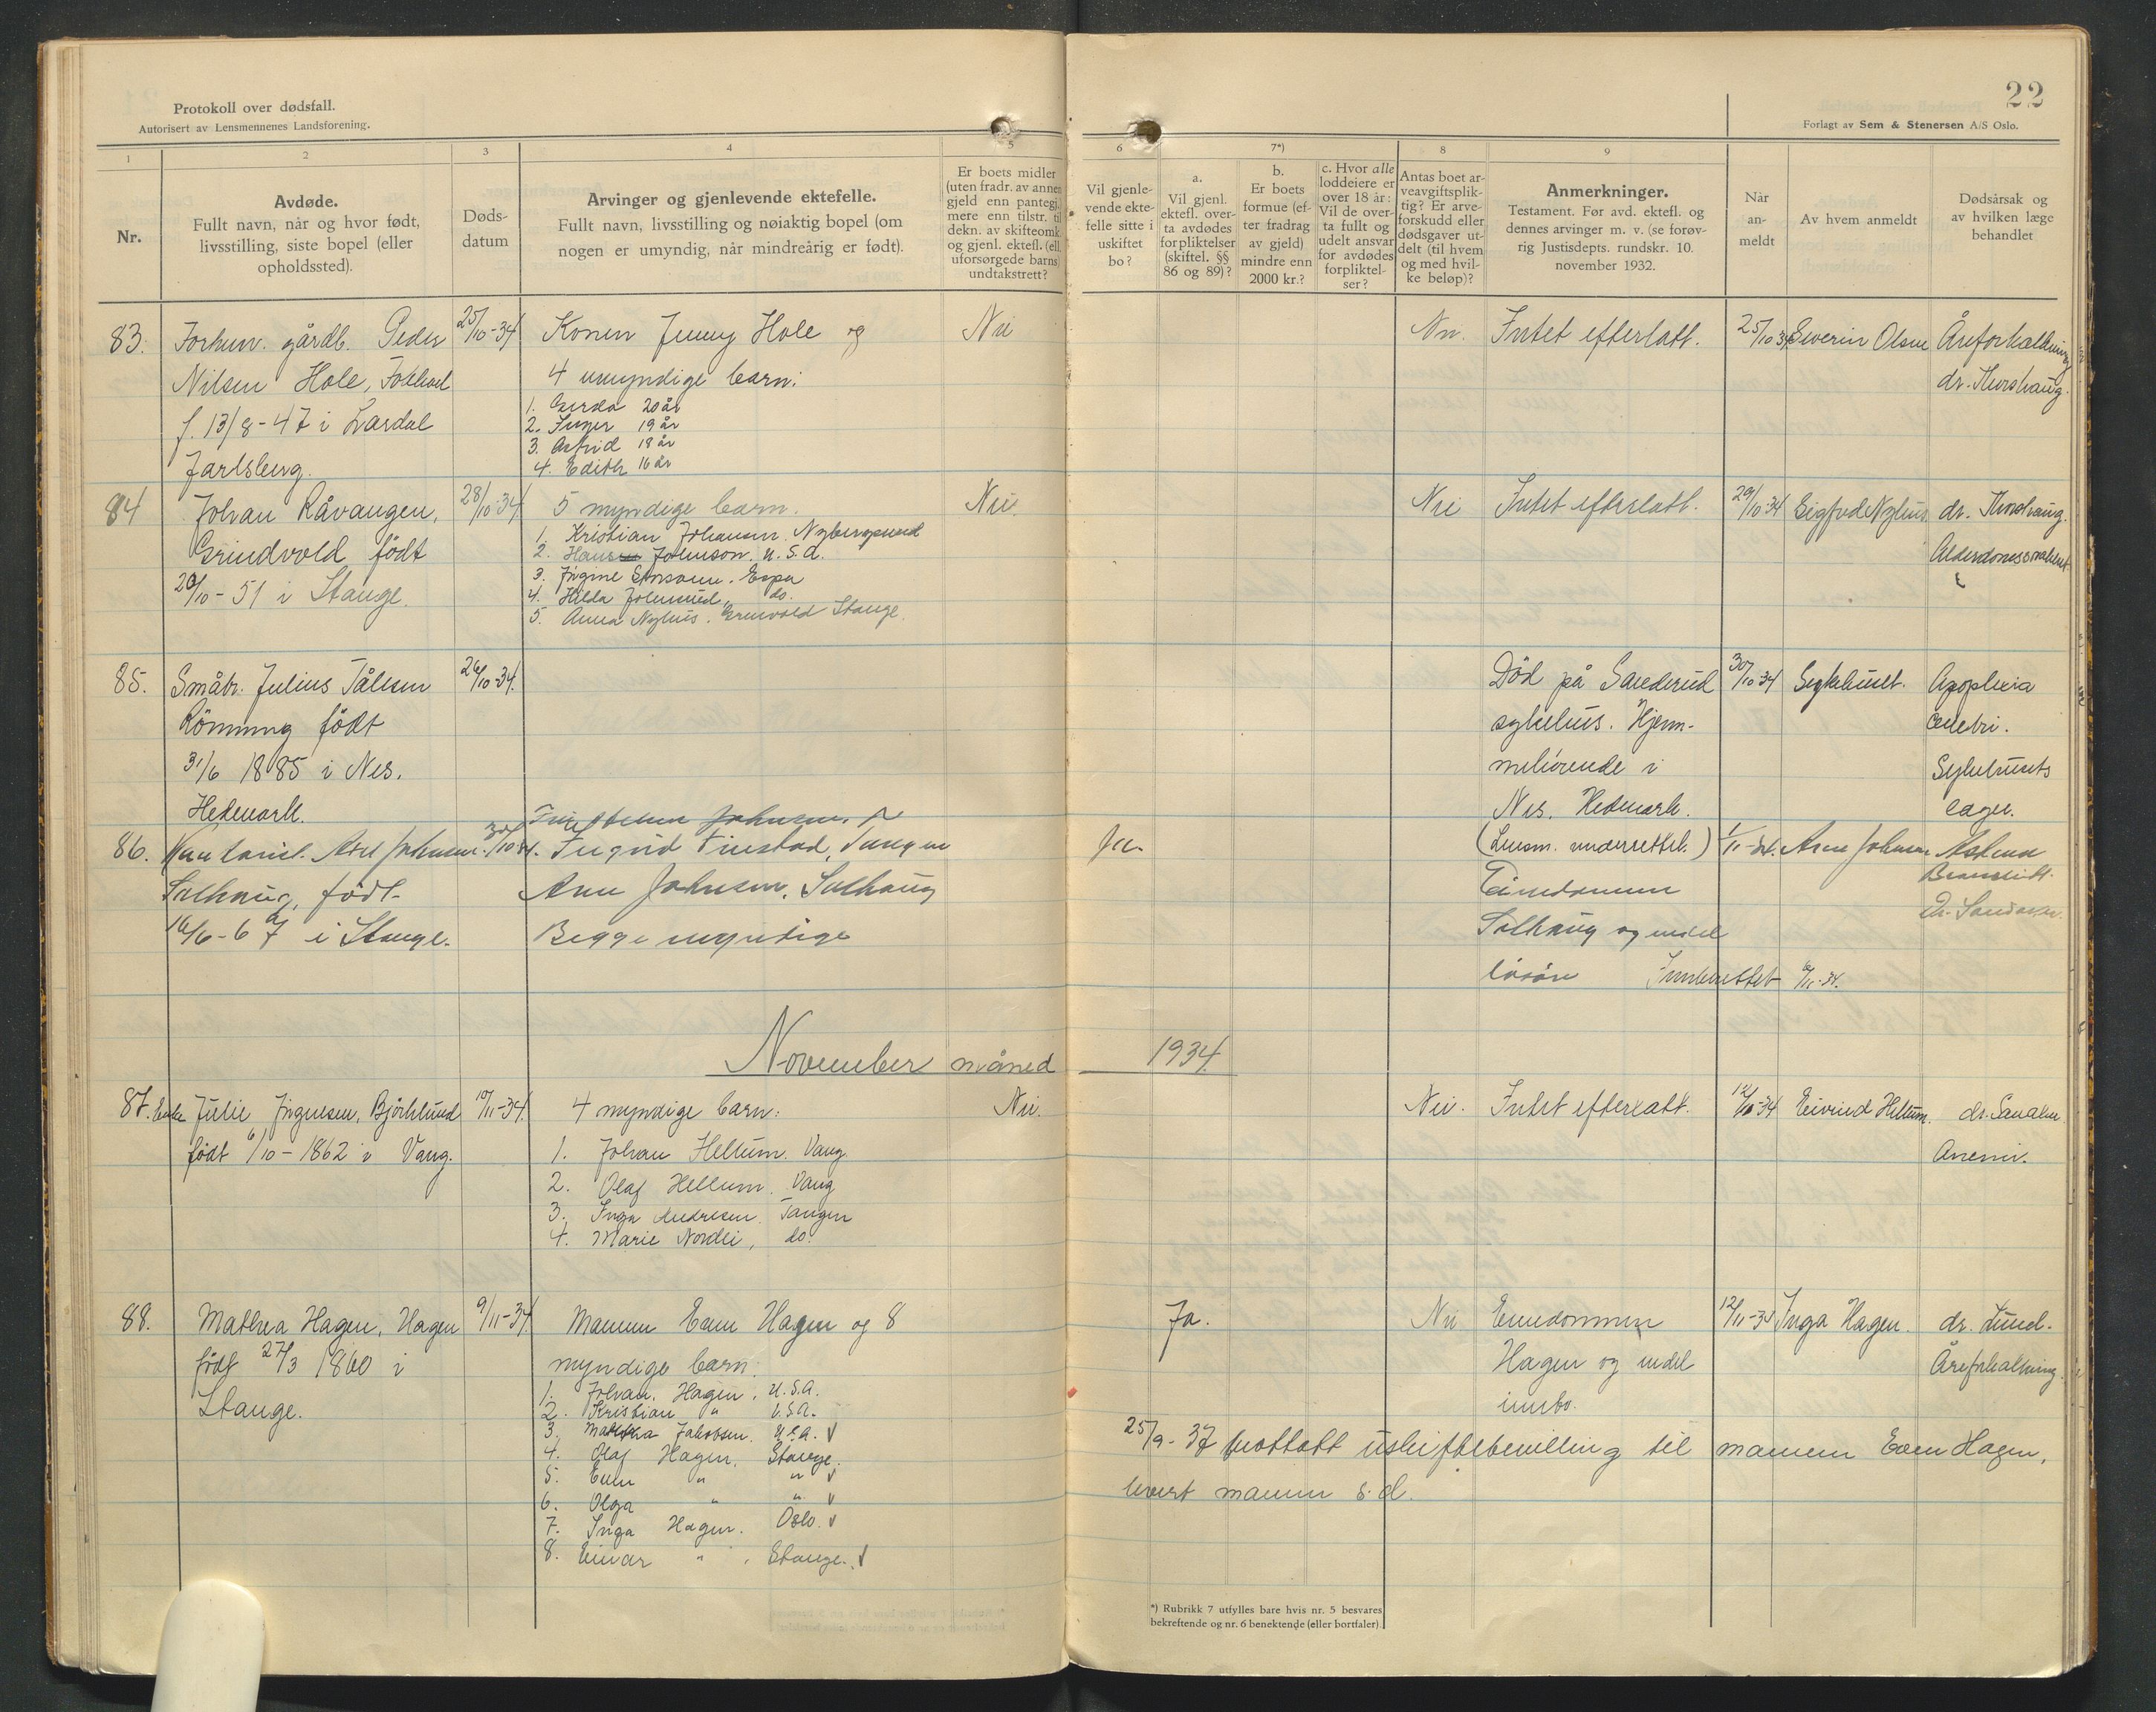 Protokoll over dødsfall.
Autorisert av Lensmennenes Landsforening.
22
Forlagt av Sem & Stenersen A/S Oslo.
1
2
3
4
5
6
7*)
8
9
Nr.
Avdøde.
Fullt navn, når og hvor født,
livsstilling, siste bopel (eller
opholdssted).
Døds-
datum
Arvinger og gjenlevende ektefelle.
Fullt navn, livsstilling og nøiaktig bopel (om
nogen er umyndig, når mindreårig er født).
Er boets midler
(uten fradr. av annen
gjeld enn pantegj.
mere enn tilstr. til
dekn. av skifteomk.
og gjenl. ektefl. (ell.
uforsørgede barns)
undtakstrett?
Vil gjenle-
vende ekte-
felle sitte i
uskiftet
bo?
a.
Vil gjenl.
ektefl. over-
ta avdødes
forpliktelser
(skiftel. §§
86 og 89)?
b.
Er boets
formue (ef-
ter fradrag
av gjeld)
mindre enn
2000 kr.?
c. Hvor alle
loddeiere er
over 18 år:
Vil de over-
ta fullt og
udelt ansvar
for avdødes
forpliktel-
ser?
Antas boet ar-
veavgiftsplik-
tig? Er arve-
forskudd eller
dødsgaver ut-
delt (til hvem
og med hvil-
ke beløp)?
Anmerkninger.
Testament. Før avd. ektefl. og
dennes arvinger m. v. (se forøv-
rig Justisdepts. rundskr. 10.
november 1932.
Når
an-
meldt
Av hvem anmeldt
Dødsårsak og
av hvilken læge
behandlet
83. Forhenv. gårdb. Peder
Nilsen Hole,
f. 13/8-47 i Lardal
Jarlsberg.
25/10-34
Konen Jenny Hole og
4 umyndige barn:
1. Gerda 20 år
2. Inger 19 år
3. Astrid 18 år
4. Edith 16 år
Nei
Nei. Intet efterlatt.
25/10 34 Severin Olsen Åreforkalkning
dr. Thorshaug.
84 Johan Råvangen,
Grindvold født
20/10-51 i Stange.
28/10-34
5 myndige barn.
1. Kristian Johansen. Nybergsund
2. Hans Johnson. U.S.A.
3. Jørgine Espa
4. Hilda do.
5. Anna Nyhus. Stange.
Nei.
Nei Intet efterlatt.
29/10-34 Sigfred Nyhus dr. Thorshaug.
Alderdomssvakhet
85. Småbr. Julius Pålsen
Rönning født
31/6 1885 i Nes.
Hedmark.
26/10-34.
Död på Sanderud
sykehus. Hjem-
mehörende i
Nes. Hedmark.
(Lensm. underrettet.)
30/10-34 Sykehuset. Apoplexia
cerebri.
Sykehusets
læge.
86. Johnsen.
Solhaug, født
16/6-67 i Stange.
30/10 34.
Ingrid Finstad, Tangen
Arne Johnsen, Solhaug
Begge myndige
Ja.
Eiendommen
Solhaug og endel
lösöre Innberettet 6/11-34.
1/11-34. Arne Johnsen Astma
Dr. Sandaker
November måned 1934.
87. Enke Julie Jörgensen, Björklund
født 6/10-1862 i Vang.
10/11-34.
4 myndige barn:
1. Johan Hellum. Vang
2. Olaf Hellum. Vang
3. Inga Andresen. Tangen
4. Marie Nordli, do.
Nei.
Nei. Intet efterlatt.
12/11-34 Eivind Hellum. dr. Sandaker
Anemi.
88. Mathea Hagen, Hagen
født 27/3 1860 i
Stange.
9/11-34
Mannen Even Hagen og 8
myndige barn:
1. Johan. Hagen, U.S.A.
2. Kristian " U.S.A.
3. Mathea Jakobsen. U.S.A. v
4. Olaf Hagen. Stange.
5. Even " " v
6. Olga " " v
7. Inga Hagen. Oslo. v
8. Einar " , Stange. v
Ja.
Nei Eiendommen
Hagen og endel
innbo.
12/11-34 Inga Hagen. dr. Lund.
Åreforkalkning.
25/9-37 mottatt uskiftebevilling til mannen Even Hagen,
levert mannen s.d.
*) Rubrikk 7 utfylles bare hvis nr. 5 besvares
bekreftende og nr. 6 benektende (eller bortfaler).